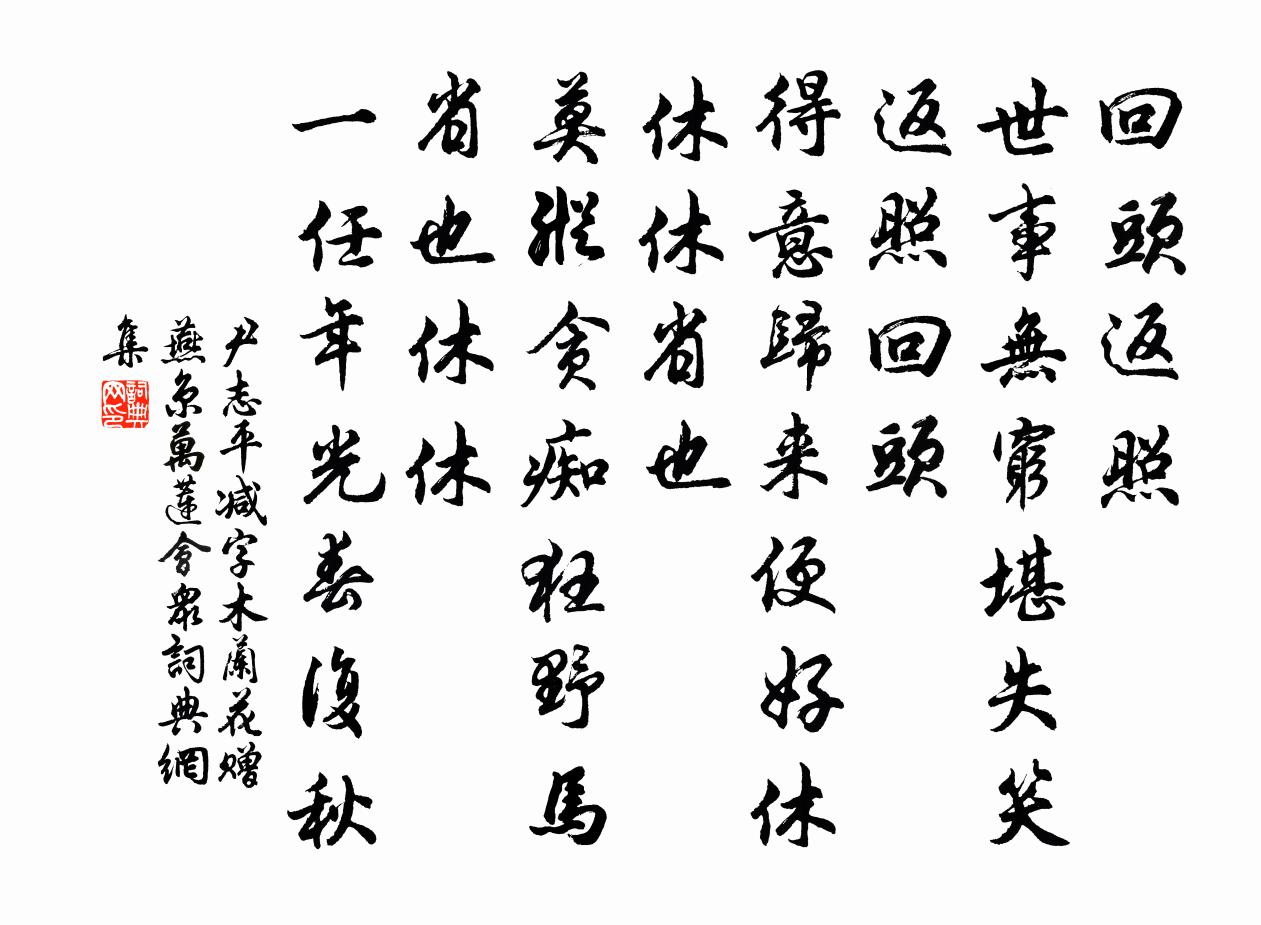 回頭返照
世事無窮堪失笑
返照回頭
得意歸来便好休
休休省也
莫縱貪痴狂野馬
省也休休
一任年光春復秋
尹志平减字木蘭花赠
燕京萬蓮會衆詞典網
集
詞典
网印